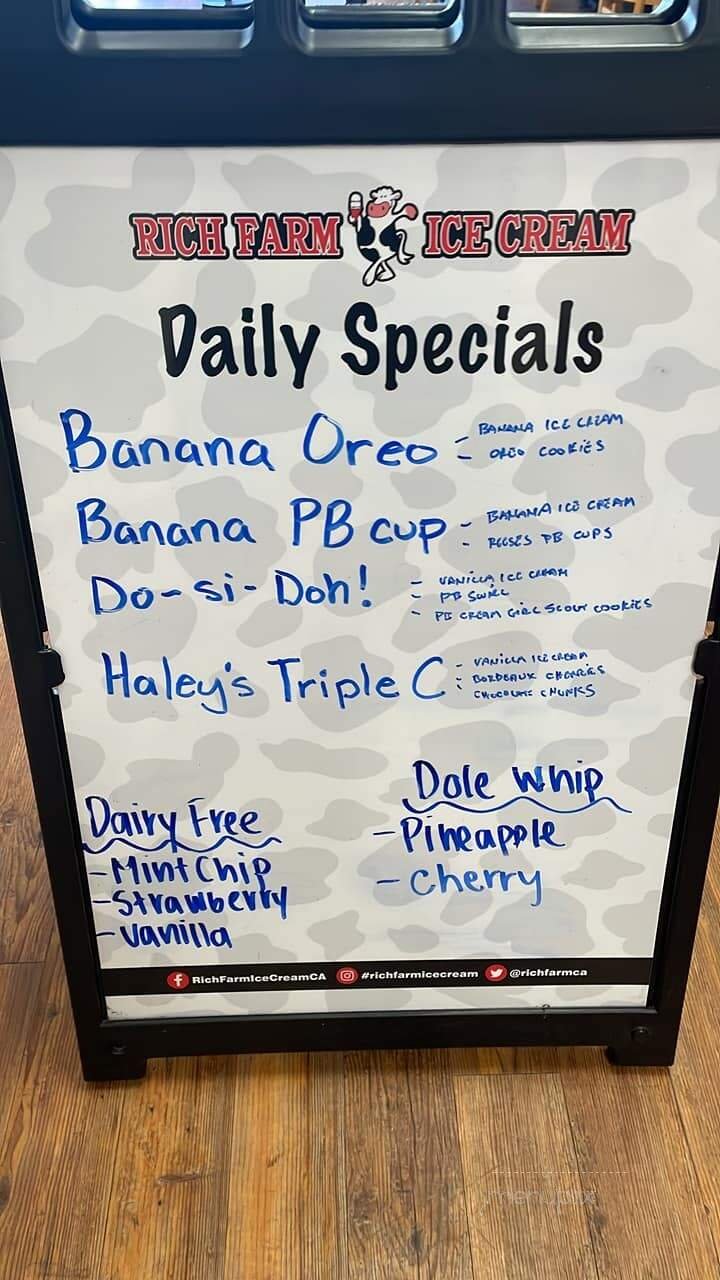 RICH FARM ICE CREAM
Daily Specials
Banana Oreo - BANANA ICE CREAM
- OREO COOKIES
Banana PB cup - BANANA ICE CREAM
- REESES PB CUPS
Do-si-Doh! - VANILLA ICE CREAM
- PB SWIRL
- PB CREAM GIRL SCOUT COOKIES
Haley's Triple C - VANILLA ICE CREAM
- BORDEAUX CHERRIES
- CHOCOLATE CHUNKS
Dairy Free
- Mint Chip
- Strawberry
- Vanilla
Dole Whip
- Pineapple
- Cherry
RichFarmIceCreamCA #richfarmicecream @richfarmca
menupix